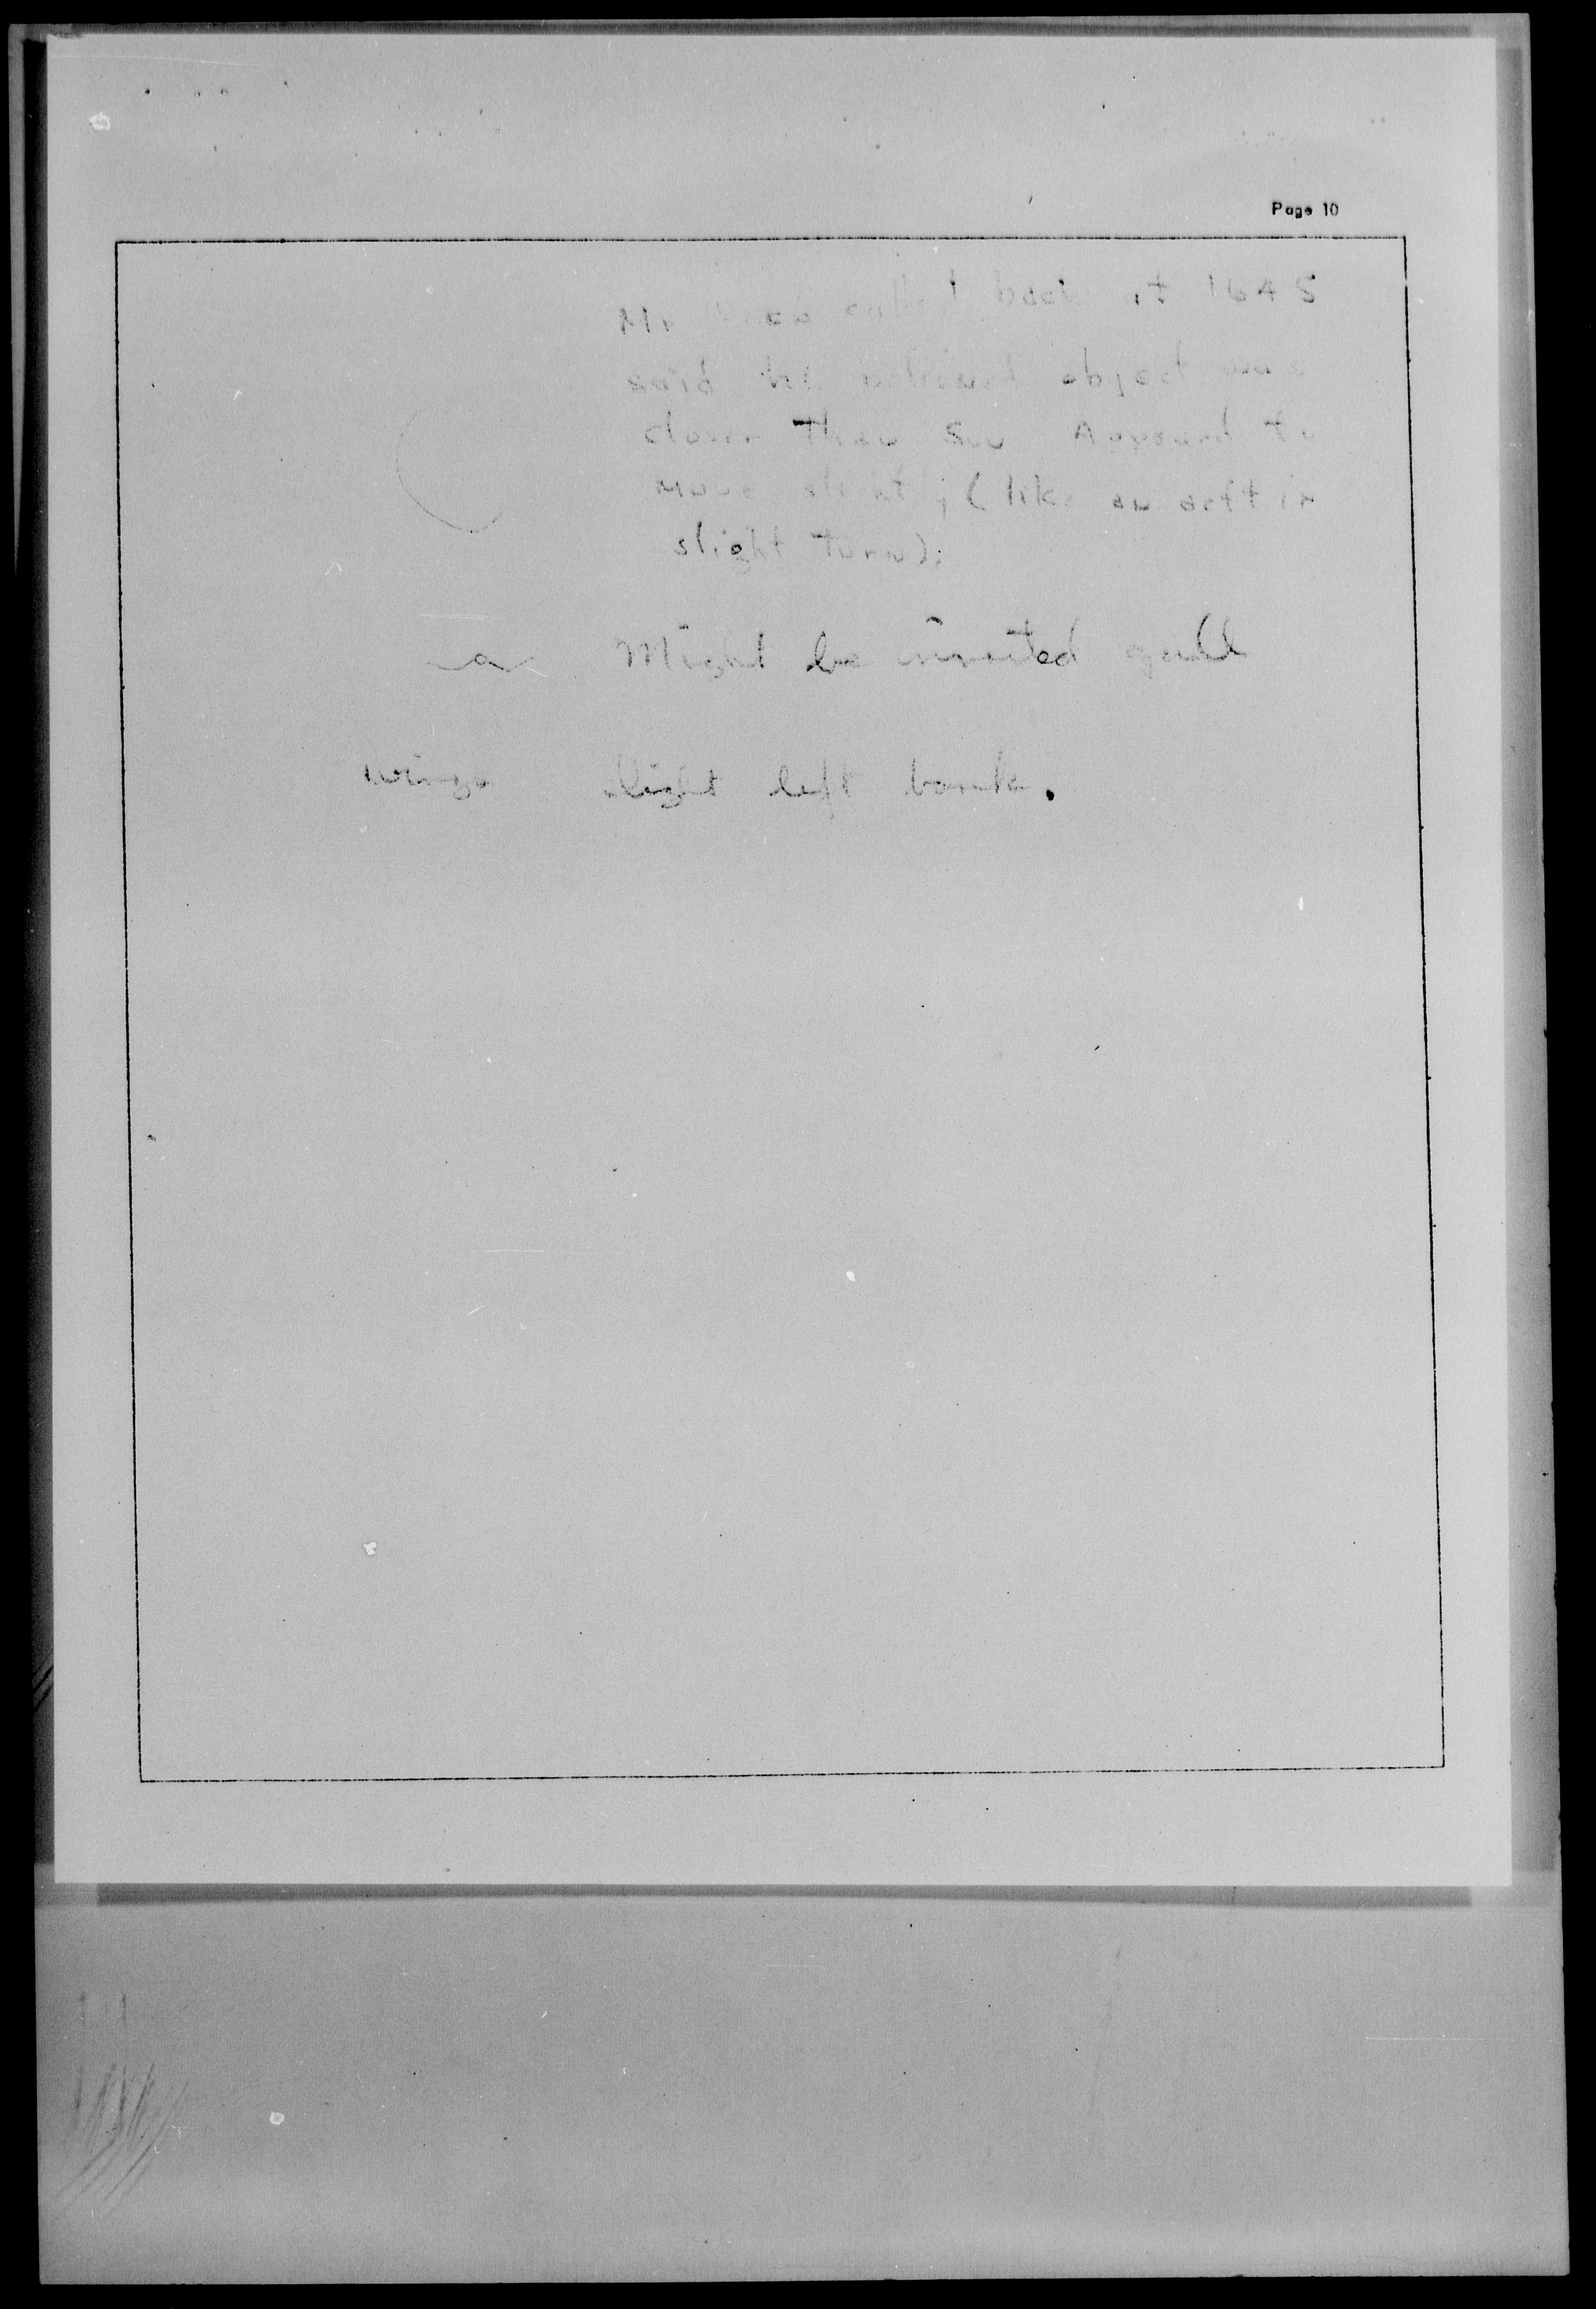 Page 10
Mr called back at 1645
said he believed object was
closer than sun Appeared to
move slightly (like an acft in
slight turn).
Might be inverted gull
wings slight left bank.